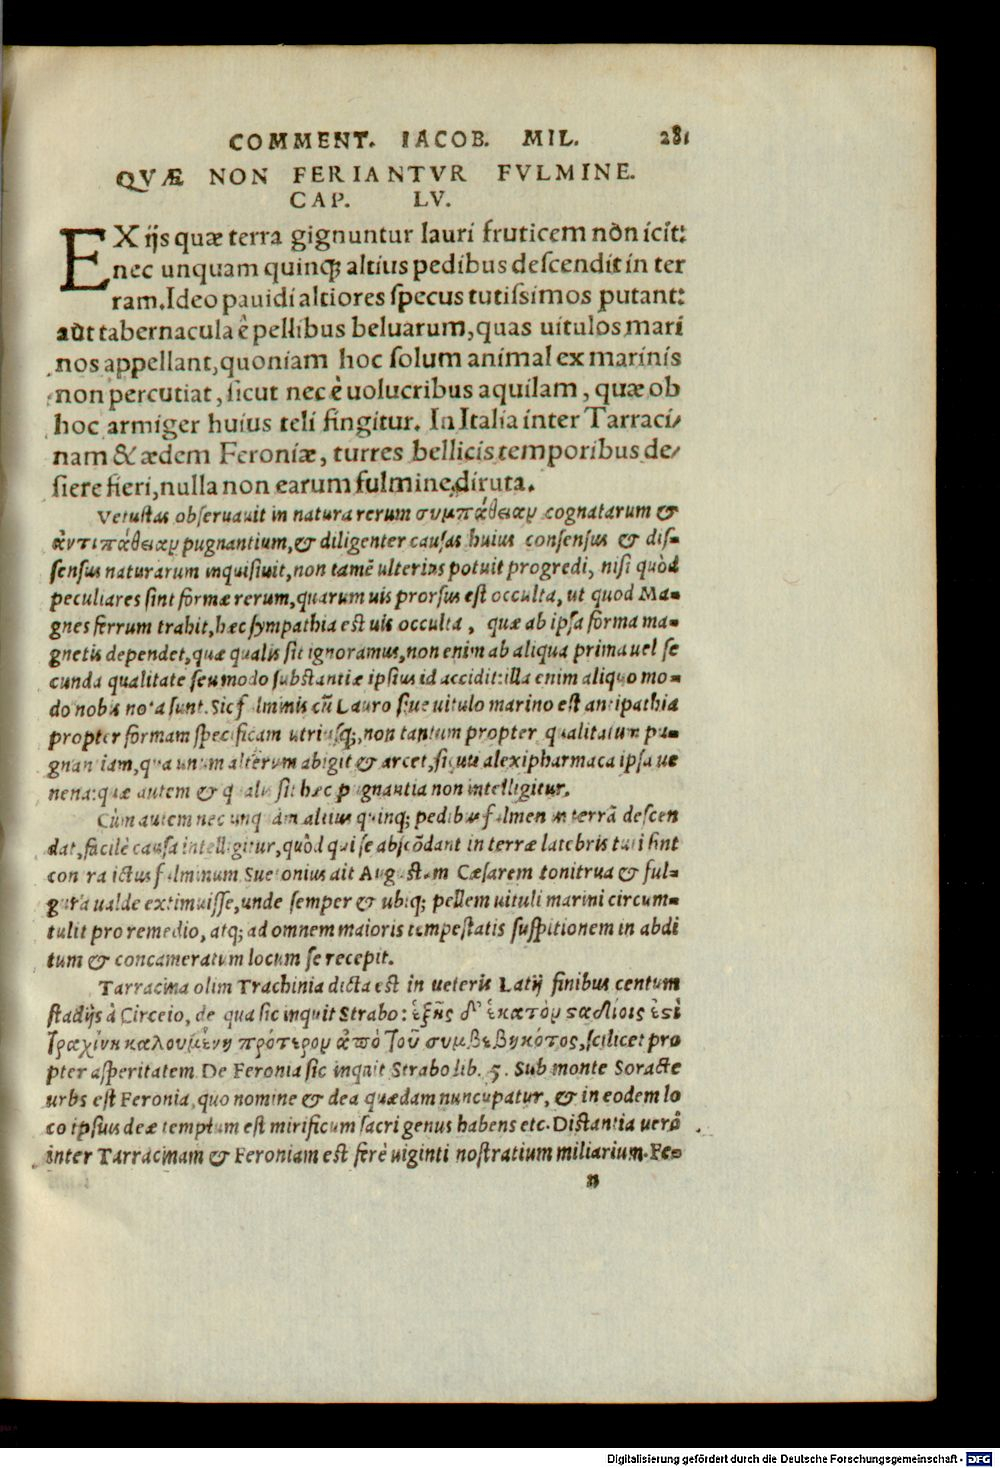 COMMENT. IACOB. MIL. 281
QVÆ NON FERIANTVR FVLMINE.
CAP. LV.
EX ijs quæ terra gignuntur lauri fruticem nõn icit:
nec unquam quinq; altius pedibus descendit in ter
ram. Ideo pauidi altiores specus tutissimos putant:
aũt tabernacula è pellibus beluarum, quas uitulos mari
nos appellant, quoniam hoc solum animal ex marinis
non percutiat, sicut nec è uolucribus aquilam, quæ ob
hoc armiger huius teli fingitur. In Italia inter Tarraci/
nam & ædem Feroniæ, turres bellicis temporibus de/
siere fieri, nulla non earum fulmine diruta.
Vetustas obseruauit in natura rerum συμπάθειαν cognatarum &
ἀντιπάθειαν pugnantium, & diligenter causas huius consensus & dis-
sensus naturarum inquisiuit, non tamẽ ulterius potuit progredi, nisi quòd
peculiares sint formæ rerum, quarum uis prorsus est occulta, ut quod Ma-
gnes ferrum trahit, hæc sympathia est uis occulta, quæ ab ipsa forma ma-
gnetis dependet, quæ qualis sit ignoramus, non enim ab aliqua prima uel se
cunda qualitate seu modo substantiæ ipsius id accidit: illa enim aliquo mo-
do nobis nota sunt. Sic fulminis cũ Lauro siue uitulo marino est antipathia
propter formam specificam utriusq;, non tantum propter qualitatum pu-
gnantiam, qua unum alterum abigit & arcet, sicuti alexipharmaca ipsa ue
nena: quæ autem & qualis sit hæc pugnantia non intelligitur.
Cùm autem nec unquàm altius quinq; pedibus fulmen in terrã descen
dat, facilè causa intelligitur, quòd qui se abscõdant in terræ latebris tuti sint
contra ictus fulminum Suetonius ait Augustum Cæsarem tonitrua & ful-
gura ualde extimuisse, unde semper & ubiq; pellem uituli marini circum-
tulit pro remedio, atq; ad omnem maioris tempestatis suspitionem in abdi
tum & concameratum locum se recepit.
Tarracina olim Trachinia dicta est in ueteris Latij finibus centum
stadijs à Circeio, de qua sic inquit Strabo: ἑξῆς δ' ἑκατὸν σταδίοις ἐστὶ
τραχίνη καλουμένη πρότερον ἀπὸ τοῦ συμβεβηκότος, scilicet pro
pter asperitatem De Feronia sic inquit Strabo lib. 5. Sub monte Soracte
urbs est Feronia, quo nomine & dea quædam nuncupatur, & in eodem lo
co ipsius deæ templum est mirificum sacri genus habens etc. Distantia uerò
inter Tarracinam & Feroniam est ferè uiginti nostratium miliarium. Fe-
n
Digitalisierung gefördert durch die Deutsche Forschungsgemeinschaft - DFG